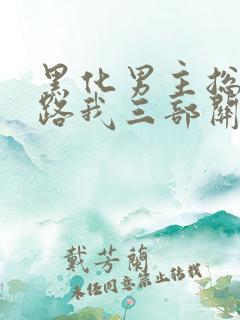 黑化男主总
路我三部开
戴芳兰
未经同意禁止转载